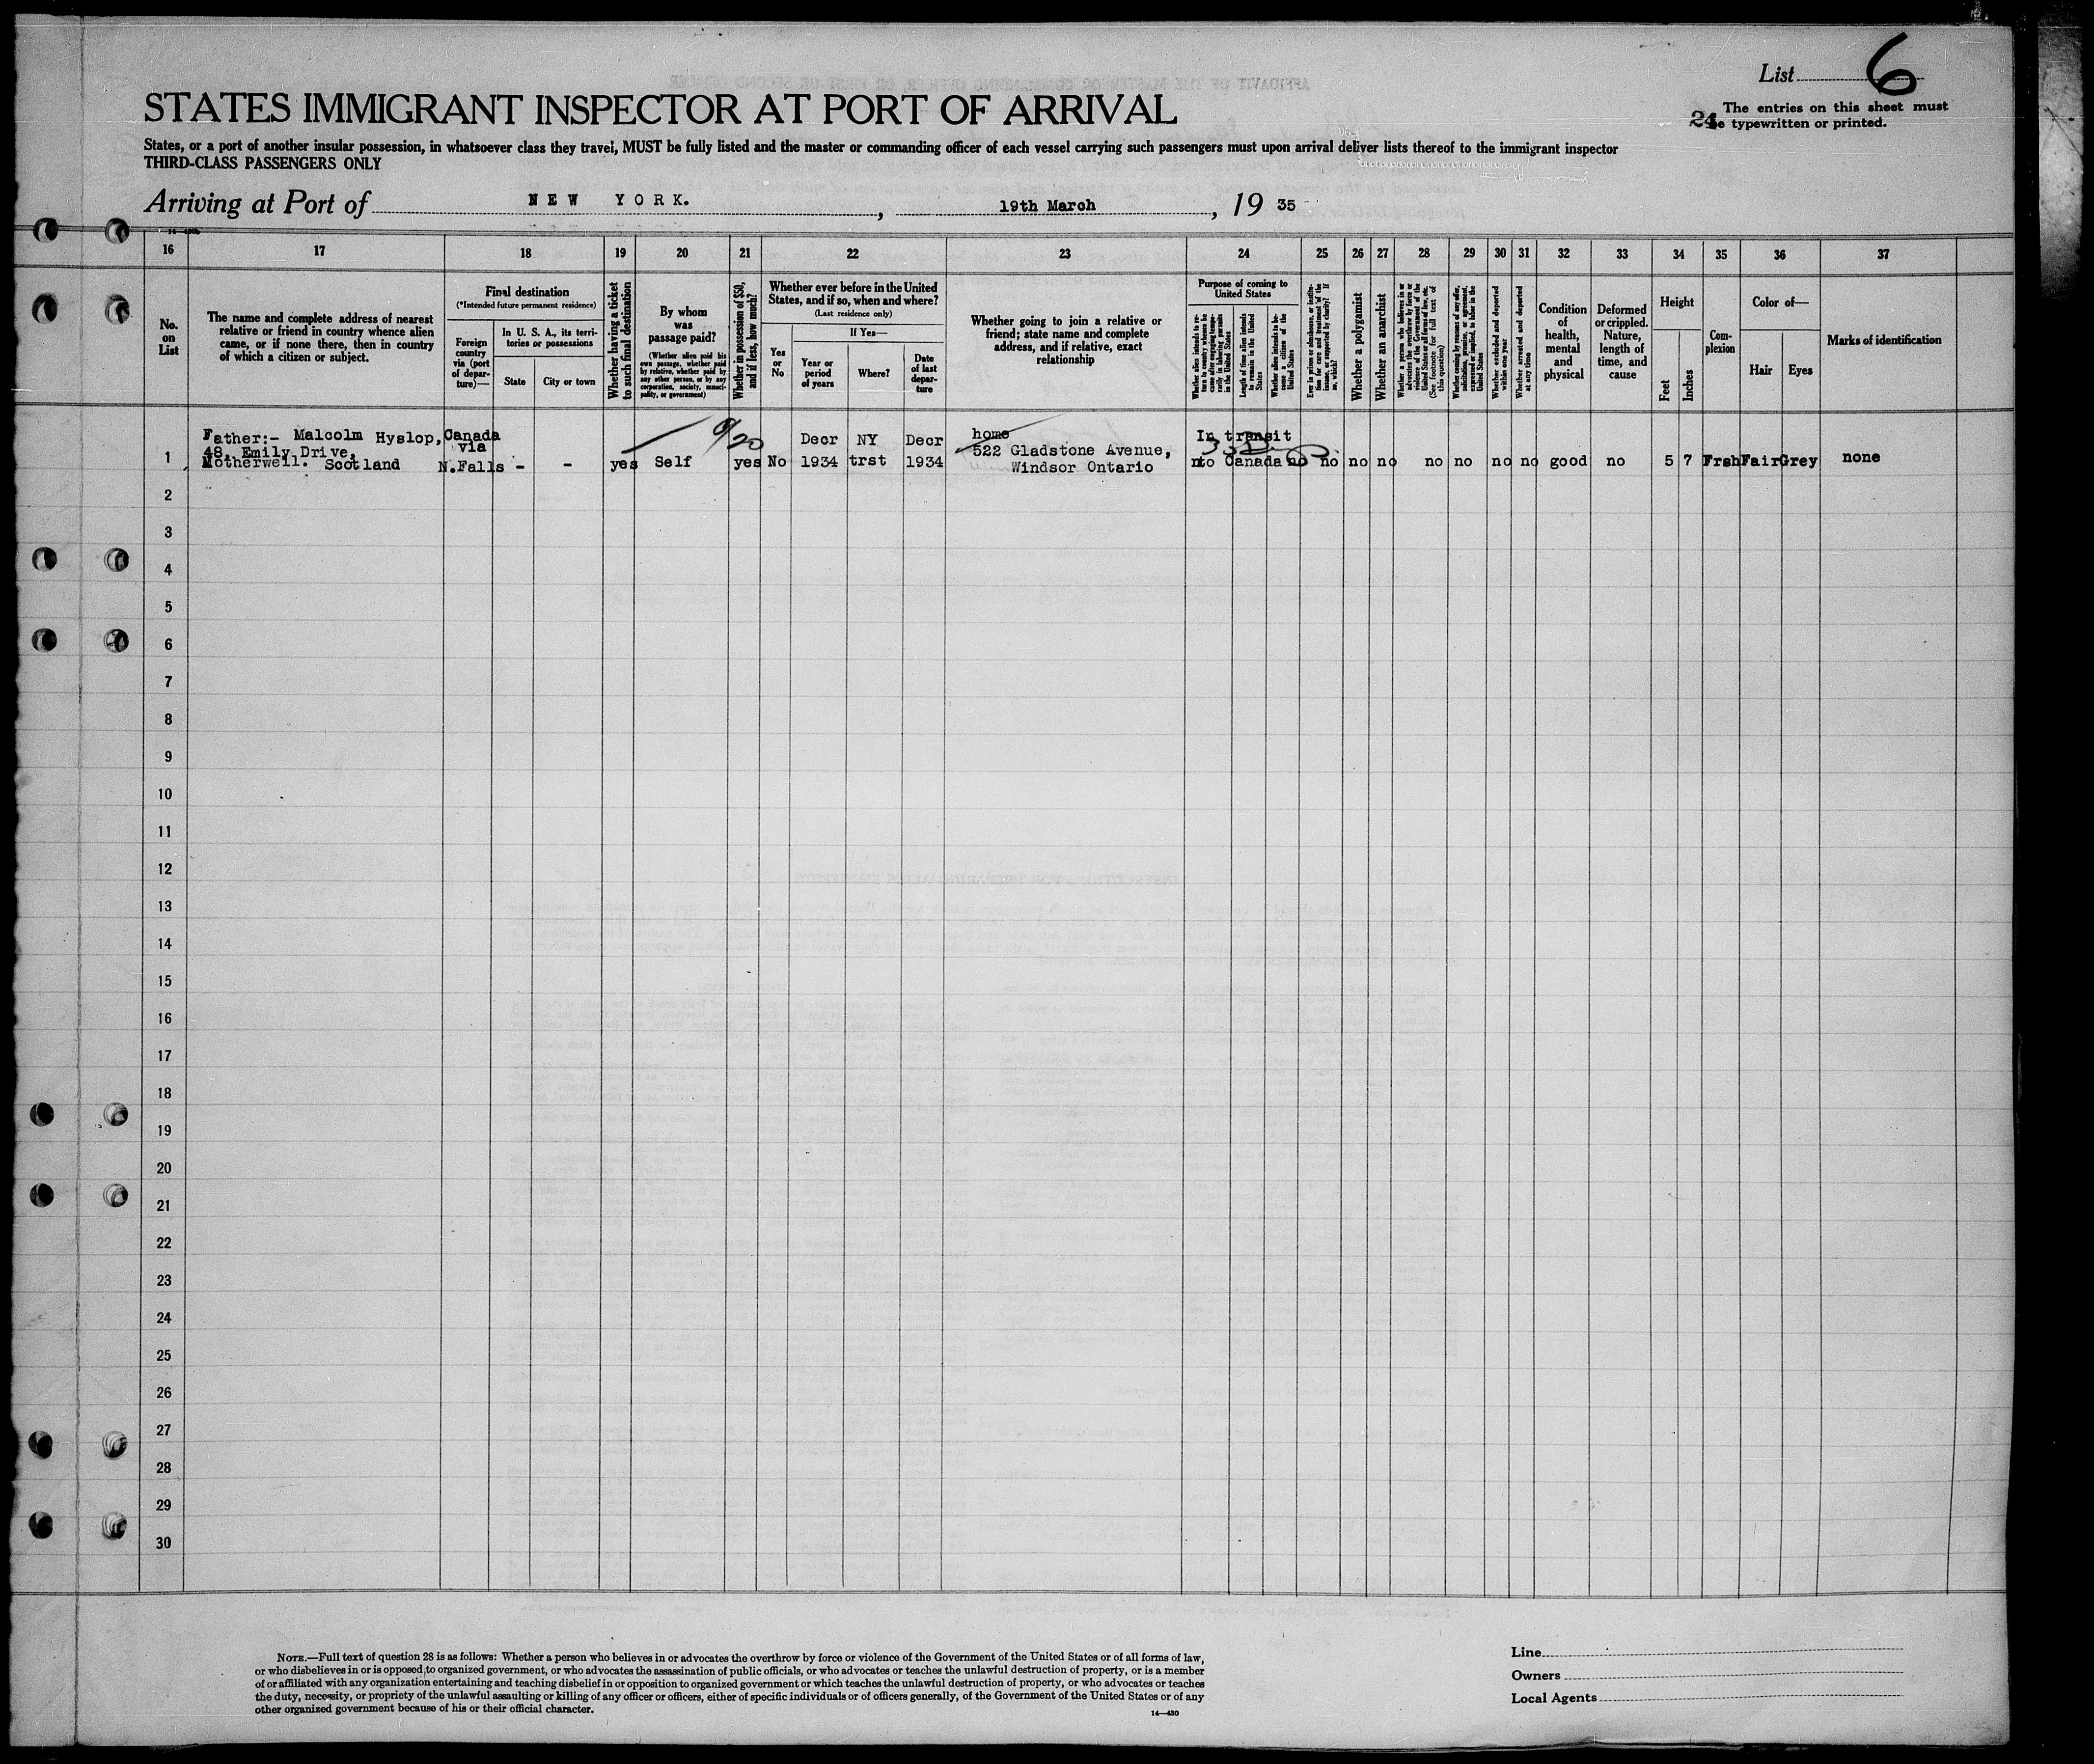 List 6
STATES IMMIGRANT INSPECTOR AT PORT OF ARRIVAL
The entries on this sheet must
be typewritten or printed.
24
States, or a port of another insular possession, in whatsoever class they travel, MUST be fully listed and the master or commanding officer of each vessel carrying such passengers must upon arrival deliver lists thereof to the immigrant inspector
THIRD-CLASS PASSENGERS ONLY
Arriving at Port of NEW YORK. , 19th March , 19 35
16 17 18 19 20 21 22 23 24 25 26 27 28 29 30 31 32 33 34 35 36 37
No. on List
The name and complete address of nearest
relative or friend in country whence alien
came, or if none there, then in country
of which a citizen or subject.
Final destination
(*Intended future permanent residence)
Foreign
country
via (port
of depar-
ture)—
In U. S. A., its terri-
tories or possessions
State City or town
Whether having a ticket
to such final destination
By whom
was
passage paid?
(Whether alien paid his
own passage, whether paid
by relative, whether paid by
any other person, or by any
corporation, society, munici-
pality, or government)
Whether in possession of $50,
and if less, how much?
Whether ever before in the United
States, and if so, when and where?
(Last residence only)
Yes
or
No
If Yes—
Year or
period
of years
Where?
Date
of last
depar-
ture
Whether going to join a relative or
friend; state name and complete
address, and if relative, exact
relationship
Purpose of coming to
United States
Whether alien intends to re-
turn to country whence he
came after engaging tempo-
rarily in laboring pursuits
in the United States
Length of time alien intends
to remain in the United
States
Whether alien intends to be-
come a citizen of the
United States
Ever in prison or almshouse, or institu-
tion for care and treatment of the
insane, or supported by charity? If
so, which?
Whether a polygamist
Whether an anarchist
Whether a person who believes in or
advocates the overthrow by force or
violence of the Government of the
United States or all forms of law, etc.
(See footnote for full text of
this question)
Whether coming by reason of any offer,
solicitation, promise, or agreement,
expressed or implied, to labor in the
United States
Whether excluded and deported
within one year
Whether arrested and deported
at any time
Condition
of
health,
mental
and
physical
Deformed
or crippled.
Nature,
length of
time, and
cause
Height
Feet Inches
Com-
plexion
Color of—
Hair Eyes
Marks of identification
Father:- Malcolm Hyslop, Canada 9/20 Decr NY Decr home In transit
48, Emily Drive, via 522 Gladstone Avenue,
1 Motherwell. Scotland N.Falls - - yes Self yes No 1934 trst 1934 Windsor Ontario to Canada no no no no no no no no good no 5 7 Frsh Fair Grey none
2
3
4
5
6
7
8
9
10
11
12
13
14
15
16
17
18
19
20
21
22
23
24
25
26
27
28
29
30
NOTE.—Full text of question 28 is as follows: Whether a person who believes in or advocates the overthrow by force or violence of the Government of the United States or of all forms of law,
or who disbelieves in or is opposed to organized government, or who advocates the assassination of public officials, or who advocates or teaches the unlawful destruction of property, or is a member
of or affiliated with any organization entertaining and teaching disbelief in or opposition to organized government or which teaches the unlawful destruction of property, or who advocates or teaches
the duty, necessity, or propriety of the unlawful assaulting or killing of any officer or officers, either of specific individuals or of officers generally, of the Government of the United States or of any
other organized government because of his or their official character.
14—430
Line
Owners
Local Agents